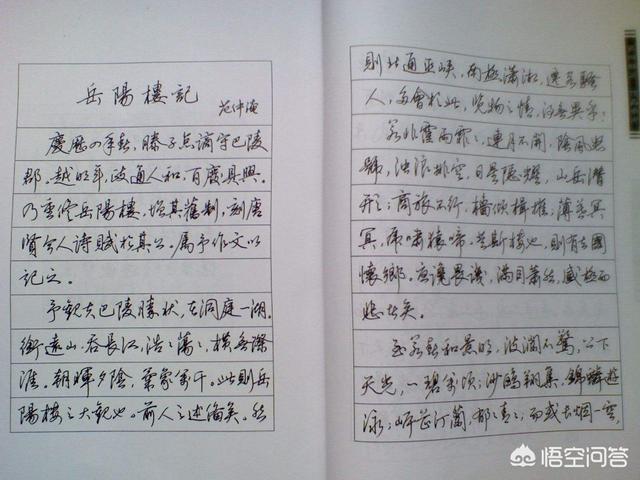 岳陽樓記
范仲淹
慶曆四年春，滕子京謫守巴陵
郡。越明年，政通人和，百廢具興。
乃重修岳陽樓，增其舊制，刻唐
賢今人詩賦於其上，屬予作文以
記之。
予觀夫巴陵勝狀，在洞庭一湖。
銜遠山，吞長江，浩浩蕩蕩，橫無際
涯。朝暉夕陰，氣象萬千。此則岳
陽樓之大觀也。前人之述備矣。然
則北通巫峽，南極瀟湘，遷客騷
人，多會於此，覽物之情，得無異乎？
若夫霪雨霏霏，連月不開，陰風怒
號，濁浪排空，日星隱耀，山岳潛
形；商旅不行，檣傾楫摧，薄暮冥
冥，虎嘯猿啼。登斯樓也，則有去國
懷鄉，憂讒畏譏，滿目蕭然，感極而
悲者矣。
至若春和景明，波瀾不驚，上下
天光，一碧萬頃；沙鷗翔集，錦鱗游
泳；岸芷汀蘭，郁郁青青；而或長煙一空，
悟空问答